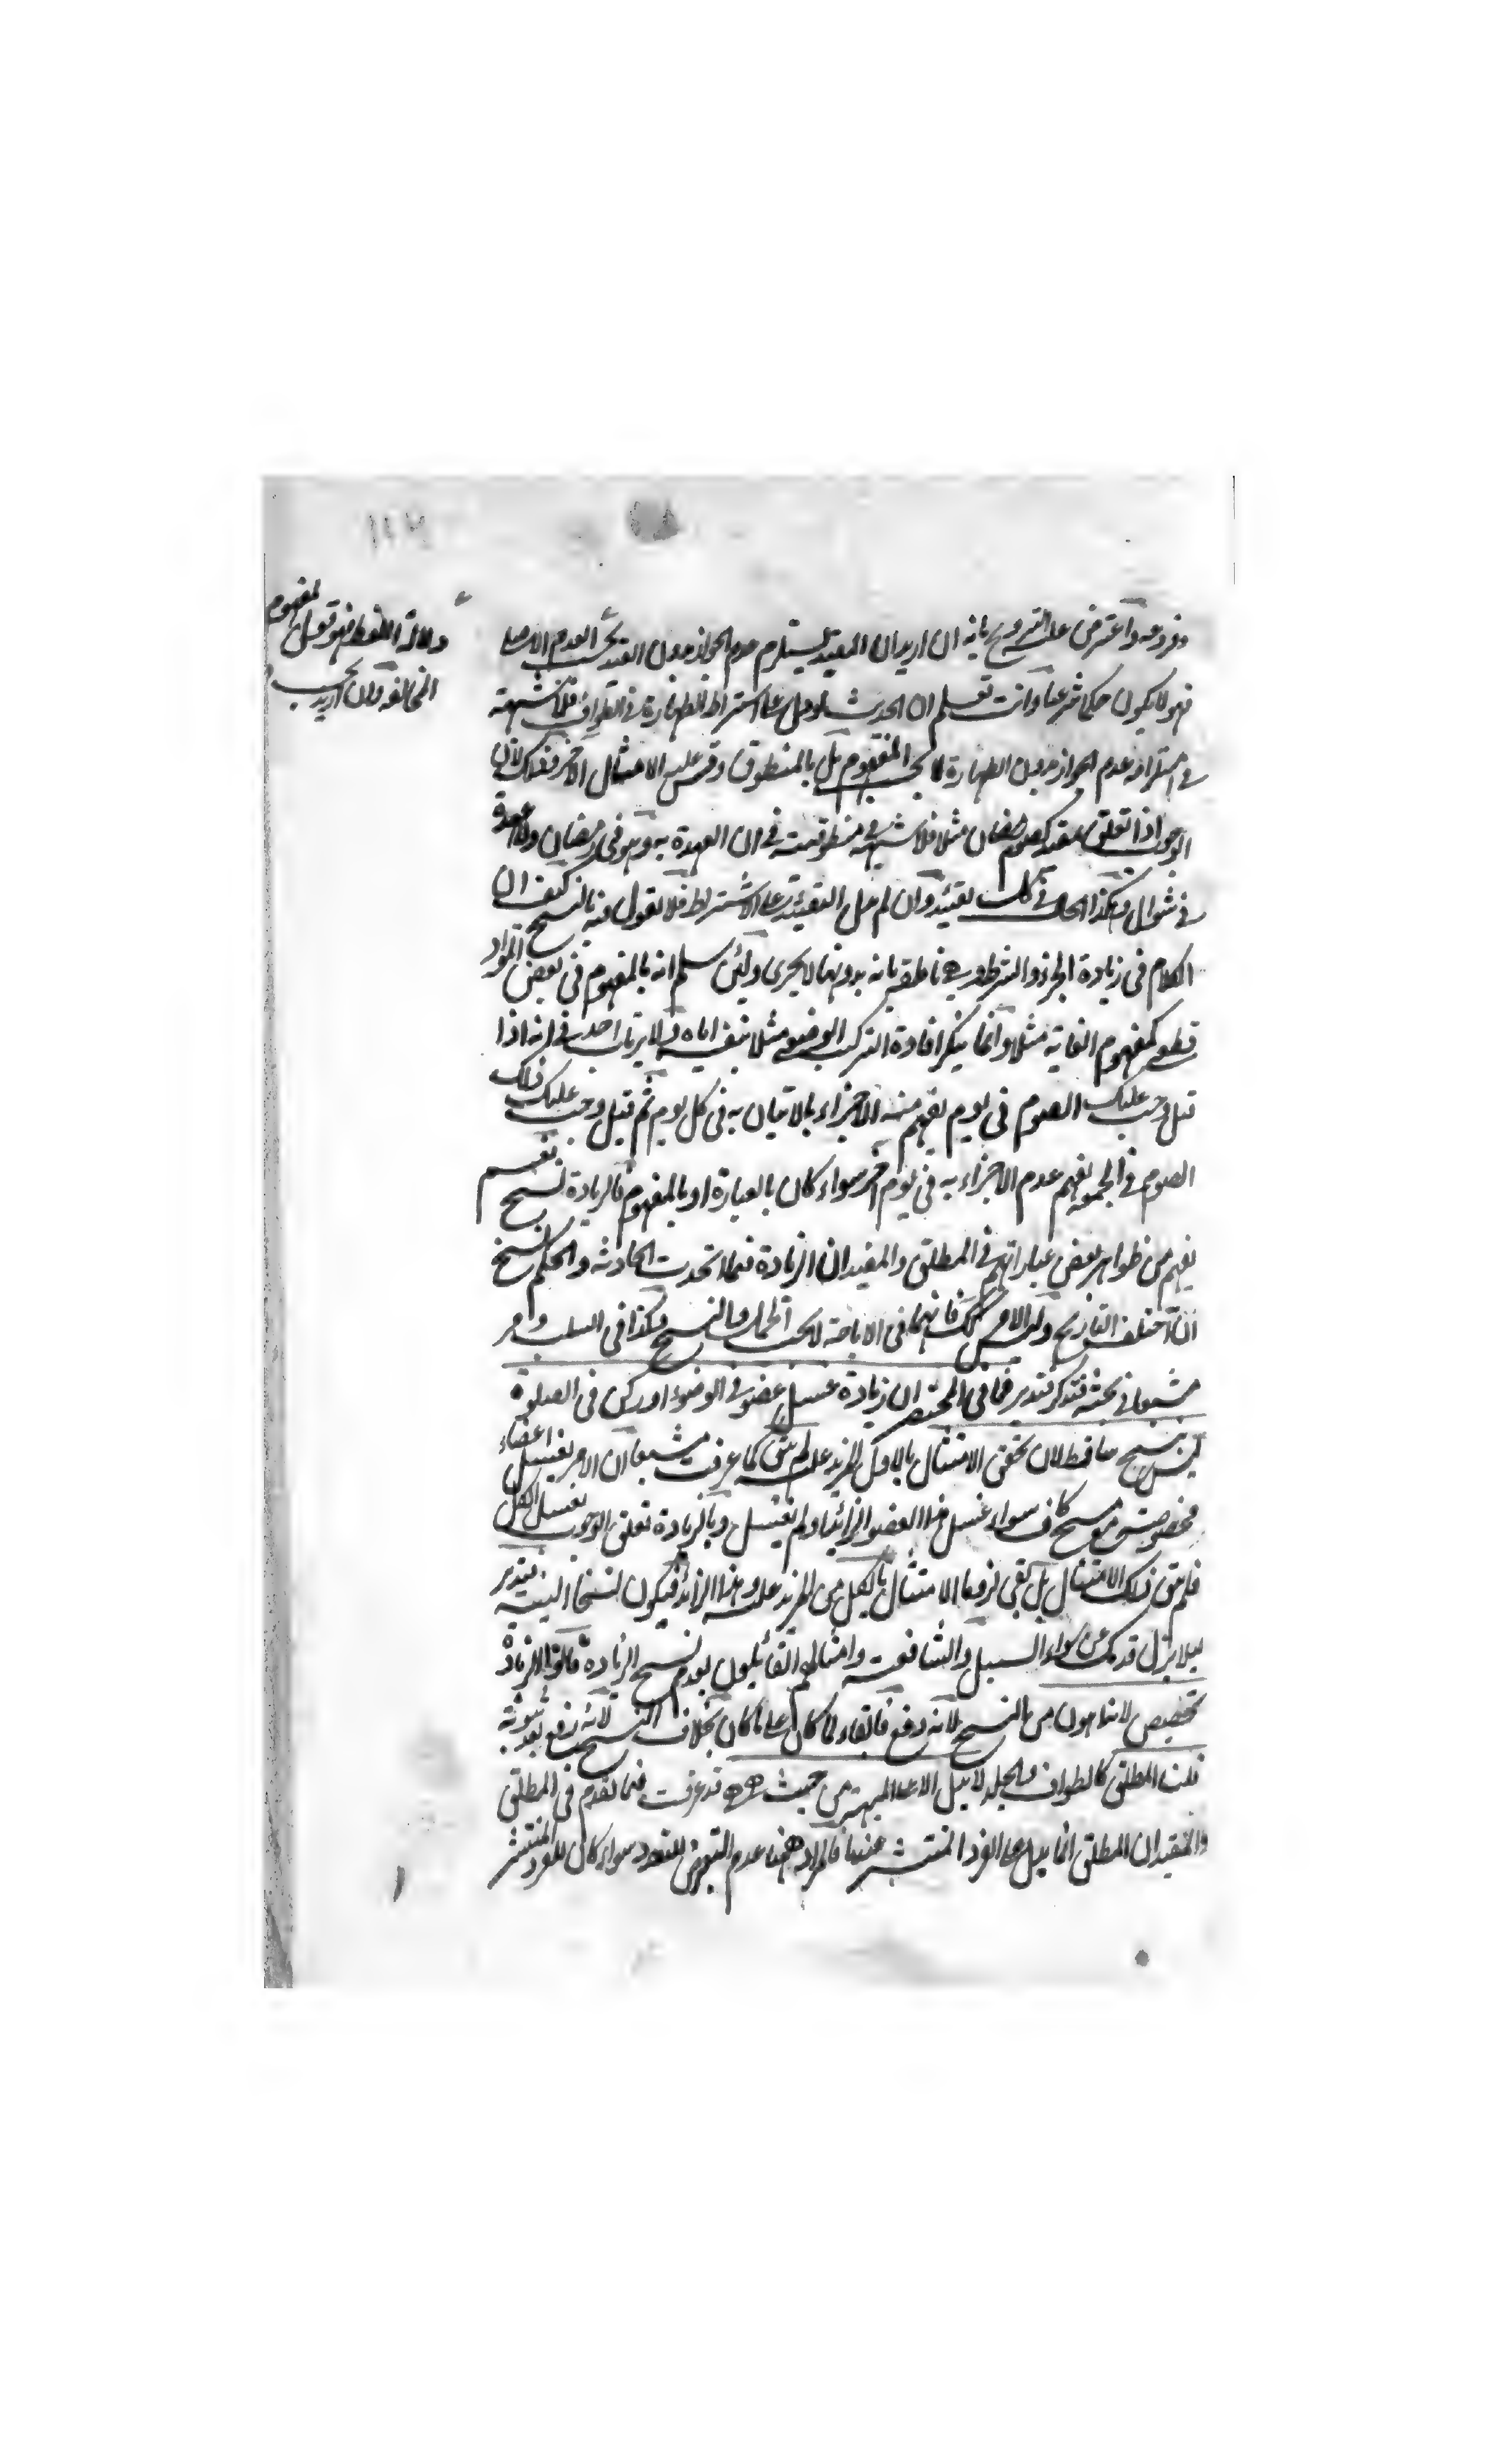 وفروعه واعترض على الشروح بانه ان اريد ان المقيد يستلزم عدم الجواز بدون القيد بحسب العدم الاصلي
فهو لا يكون حكما شرعيا وانت تعلم ان الحديث لو دل على اشتراط الطهارة في الطواف فلا شبهة
في استلزامه عدم الجواز بدون الطهارة لا بحسب المفهوم بل بالمنطوق وقس عليه الامثال الاخر وذلك لان
الوجوب اذا تعلق بمقيد كصوم رمضان مثلا فلا شبهة في منطوقيته في ان العهدة به وهو في رمضان ولا عهدة
في شوال وهكذا الحال في كل تقييد وان لم يدل التقييد على الاشتراط فلا نقول فيه بالنسخ كيف ان
الكلام في زيادة الجزء والشرط وهي ناطقة بانه بدونها لا يجزى ولئن سلم انه بالمفهوم في بعض المواد
قطعي كمفهوم الغاية مثلا وانما ينكر افادة التركيب الوضعي مثلا نفيه اياه ولا يرتاب احد في انه اذا
قيل وجب عليك الصوم في يوم يفهم منه الاجزاء بالاتيان به في كل يوم ثم قيل وجب عليك ذلك
الصوم في الجمعة يفهم عدم الاجزاء به في يوم آخر سواء كان بالعبارة او بالمفهوم فالزيادة نسخ نعم
يفهم من ظواهر بعض عباراتهم في المطلق والمقيد ان الزيادة فيما اتحدت الحادثة والحكم نسخ
ان اختلف التاريخ وليس الامر كذلك فانهما في الاباحة لا يجب الحمل والنسخ وهكذا في السلب ومر
مشبعا في بحثه فتذكر فتدبر فما في المختصر ان زيادة غسل عضو في الوضوء او ركن في الصلوة
ليس بنسخ ساقط لان تحقق الامتثال بالاول المزيد عليه لم يبق كما عرفت مشبعا ان الامر بغسل اعضاء
مخصوصة مع مسح كاف سواء غسل هذا العضو الزائد او لم يغسل وبالزيادة تعلق الوجوب بغسل الكل
فلم يبق ذلك الامتثال بل بقي لزوما الامتثال بالكل من المزيد عليه وهذا الزائد فيكون نسخا البتة فتدبر
ليلا يزل قدمك عن سواء السبيل والشافعية وامثالهم القائلون بعدم نسخ الزيادة قالوا الزيادة
تخصيص لانها اهون من النسخ لانه دفع فابقاء لما كان على ما كان بخلاف النسخ لانه رفع بعد ثبوته
قلنا المطلق كالطواف والجلد لا يدل الا على المبهم من حيث هو هو قد عرفت فيما تقدم في المطلق
والمقيد ان المطلق انما يدل على الفرد المنتشر عندنا فالمراد ههنا عدم التعرض للقيود سواء كان للفرد المنتشر
دلالة اللفظ فهو قول بمفهوم
المخالفة وان اريد بحسب